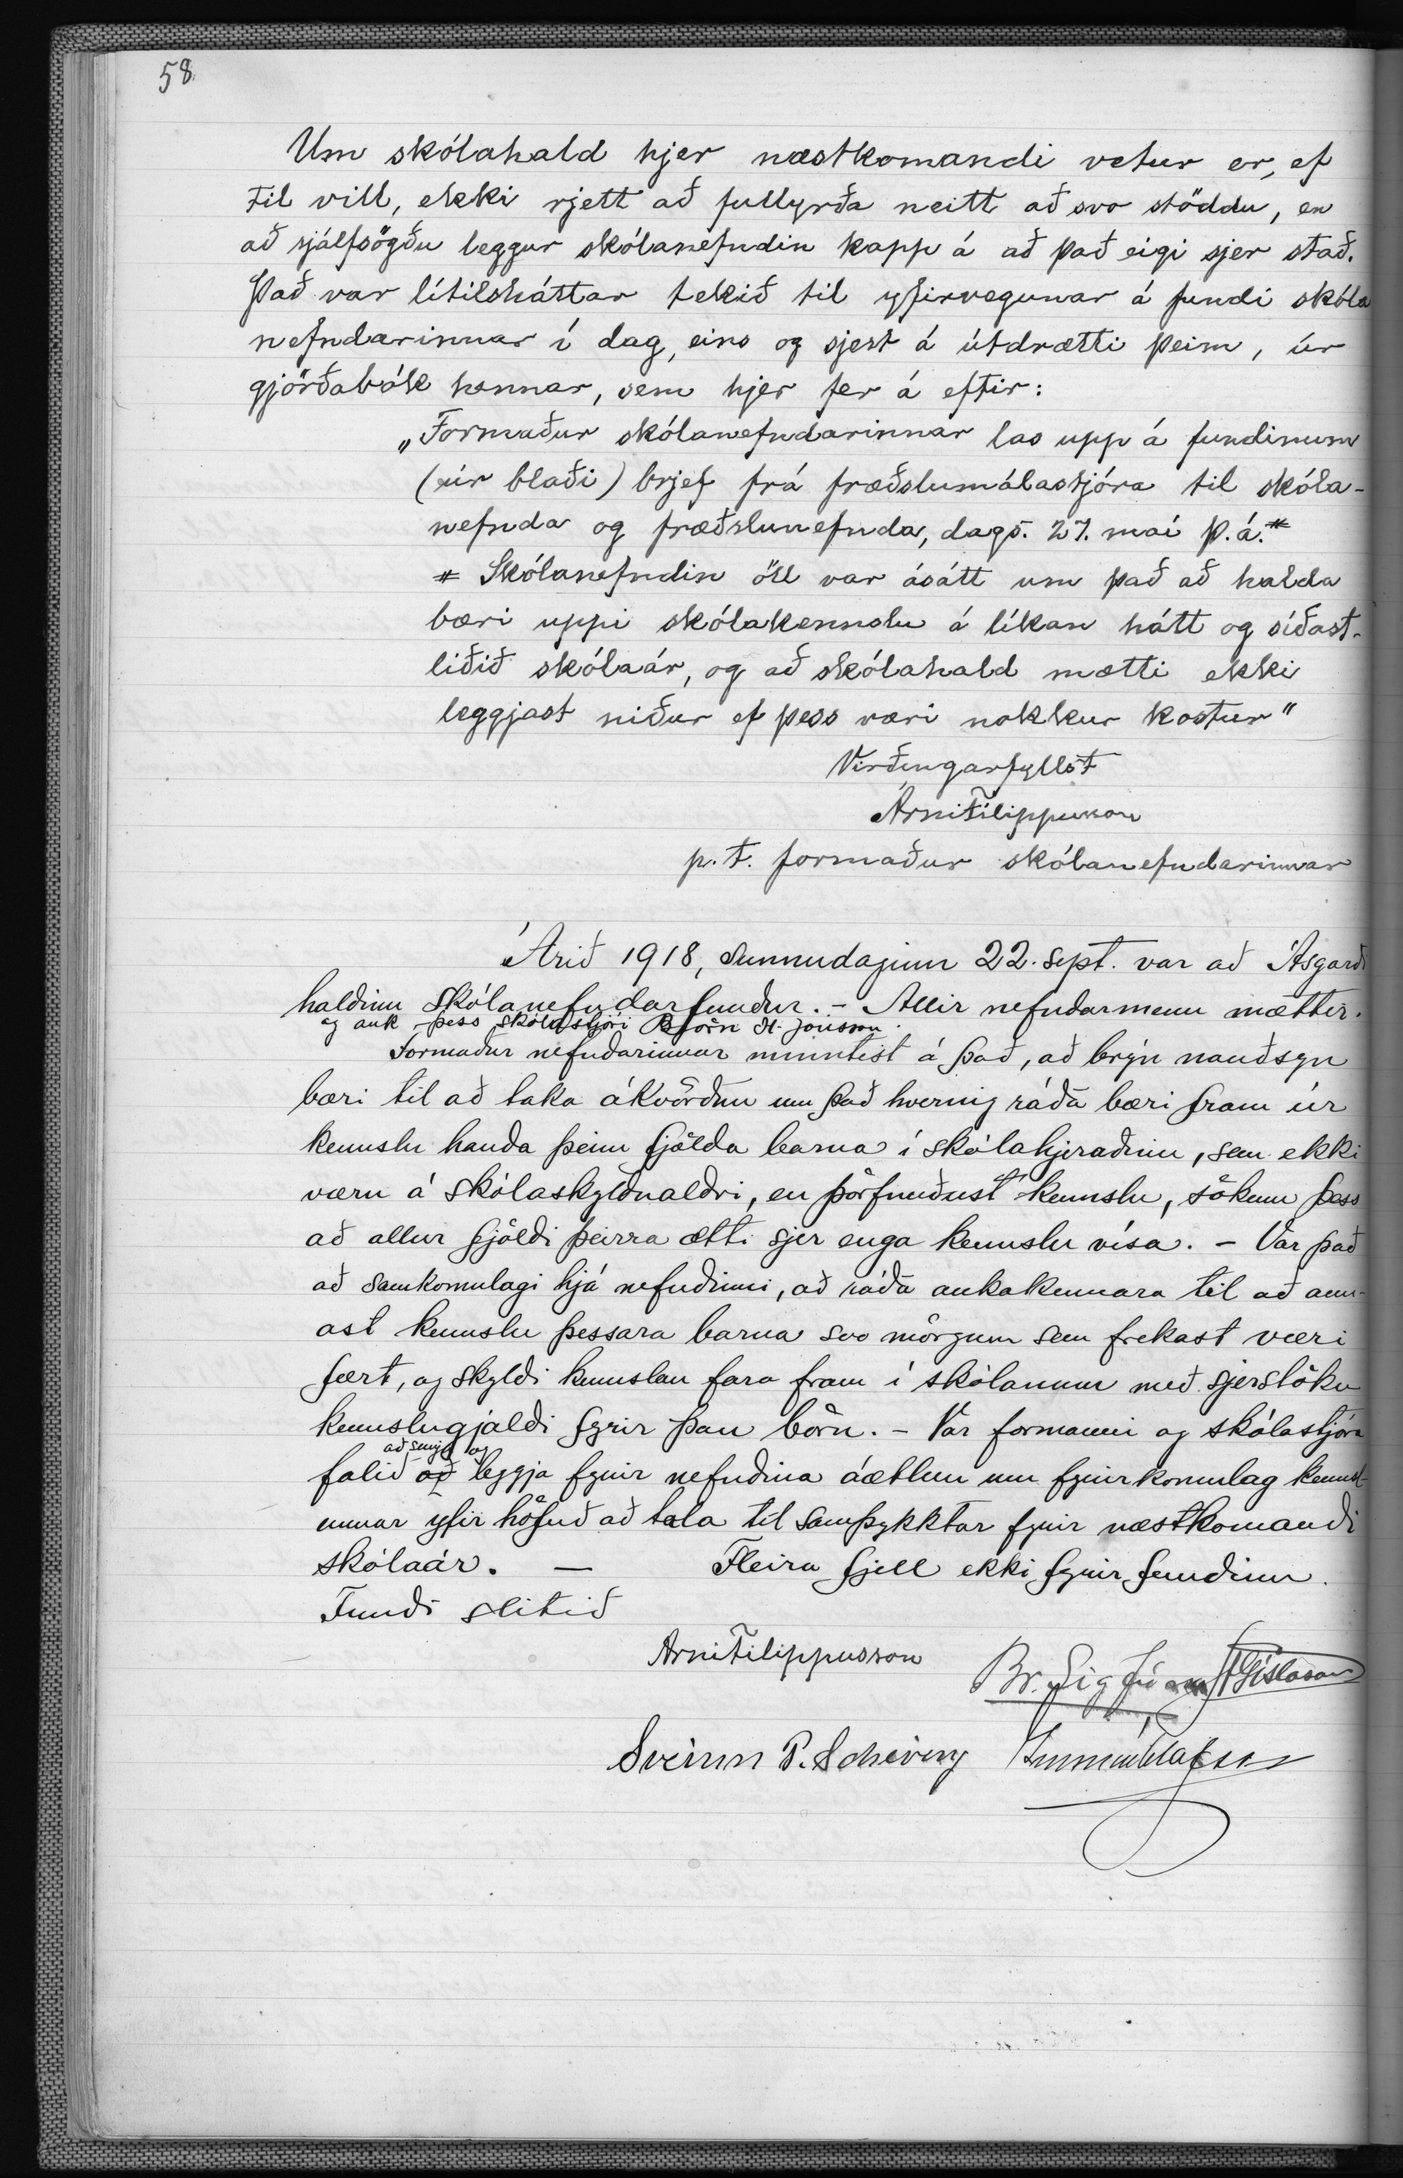 58.
Um skólahald hjer næstkomandi vetur er, ef
til vill, ekki rjett að fullyrða neitt að svo stöddu, en
að sjálfsögðu leggur skólanefndin kapp á að það eigi sjer stað.
Það var lítilsháttar tekið til yfirvegunar á fundi skóla
nefndarinnar í dag, eins og sjest á útdrætti þeim, úr
gjörðabók hennar, sem hjer fer á eftir:
„Formaður skólanefndarinnar las upp á fundinum
(úr blaði) brjef frá fræðslumálastjóra til skóla-
nefnda og fræðslunefnda, dags. 27. maí þ.á. *
* Skólanefndin öll var ásátt um það að halda
bæri uppi skólakennslu á líkan hátt og síðast-
liðið skólaár, og að skólahald mætti ekki
leggjast niður ef þess væri nokkur kostur"
Virðingarfyllst
Árni Filippusson
p.t. formaður skólanefndarinnar
Árið 1918, sunnudaginn 22. sept. var að Ásgarði
haldinn skólanefndarfundur. - Allir nefndarmenn mættir.
og auk þess skólastjóri Björn H. Jónsson.
Formaður nefndarinnar minntist á það, að brýn nauðsyn
bæri til að taka ákvörðun um það hvernig ráða bæri fram úr
kennslu handa þeim fjölda barna í skólahjeraðinu, sem ekki
væru á skólaskyldualdri, en þörfnuðust kennslu, sökum þess
að allur fjöldi þeirra ætti sjer enga kennslu vísa. - Var það
að samkomulagi hjá nefndinni, að ráða aukakennara til að ann-
ast kennslu þessara barna svo mörgum sem frekast væri
fært, og skyldi kennslan fara fram í skólanum með sjerstöku
kennslugjaldi fyrir þau börn. - Var formanni og skólastjóra
að semja og
falið að leggja fyrir nefndina áætlun um fyrirkomulag kennsl-
unnar yfir höfuð að tala til samþykktar fyrir næstkomandi
skólaár. — Fleira fjell ekki fyrir fundinn.
Fundi slitið
Árni Filippusson
Br. Sigfússon Gíslason
Sveinn P. Scheving